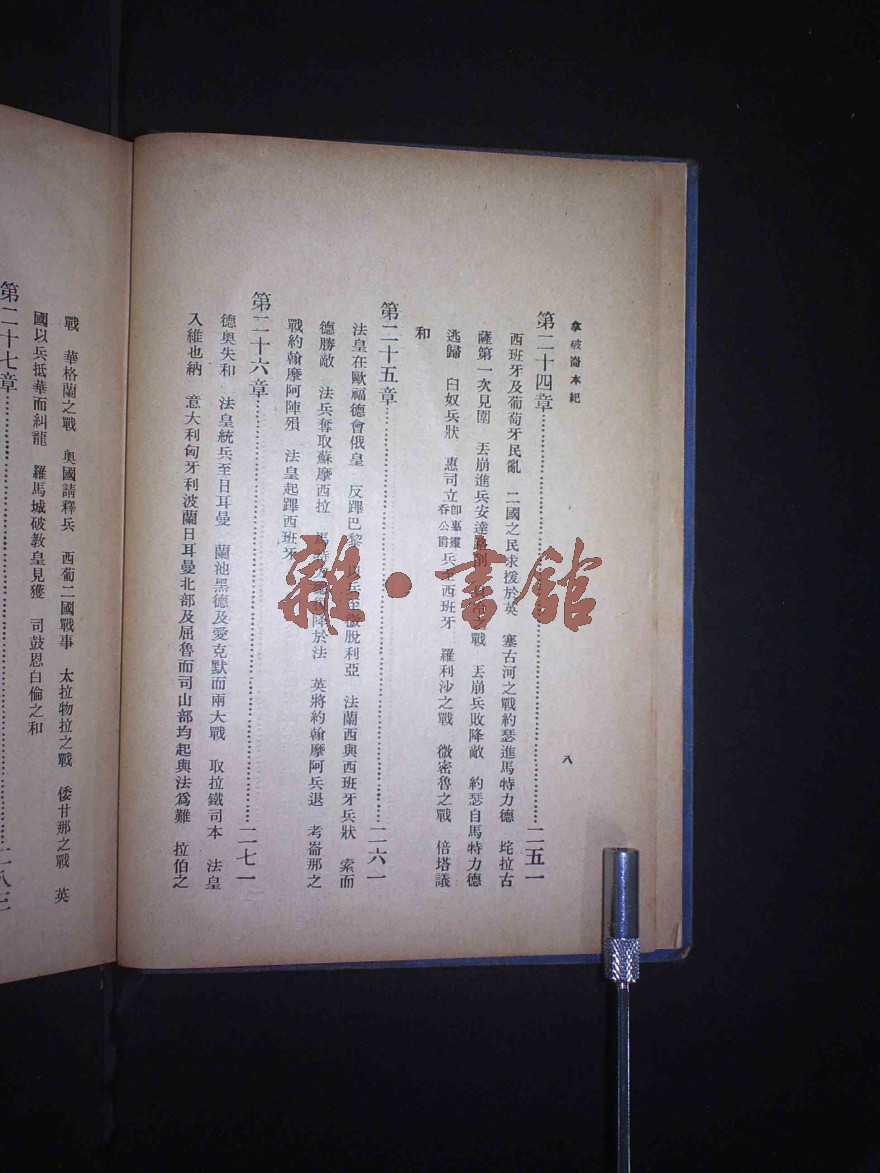 拿破崙本紀
八
第二十四章……二五一
西班牙及葡萄牙民亂　二國之民求援於英　塞古河之戰約瑟進馬特力德　垞拉古
薩第一次見圍　丟崩進兵安達　之戰　丟崩兵敗降敵　約瑟自馬特力德
逃歸　白奴兵狀　惠司立即惠靈吞公爵兵至西班牙　羅利沙之戰　微密魯之戰　倍塔議
和
第二十五章……二六一
法皇在歐福德會俄皇　反蹕巴黎　脫利亞　法蘭西與西班牙兵狀　索而
德勝敵　法兵奪取蘇摩西拉　馬特　降於法　英將約翰摩阿兵退　考崙那之
戰約翰摩阿陣殞　法皇起蹕西班牙
第二十六章……二七一
德奧失和　法皇統兵至日耳曼　蘭池黑德及愛克默而兩大戰　取拉鐵司本　法皇
入維也納　意大利匈牙利波蘭日耳曼北部及屈魯而司山部均起與法爲難　拉伯之
戰　華格蘭之戰　奧國請釋兵　西葡二國戰事　太拉物拉之戰　倭甘那之戰　英
國以兵抵華而糾龍　羅馬城破教皇見獲　司鼓恩白倫之和
第二十七章……二八三
雜·書館